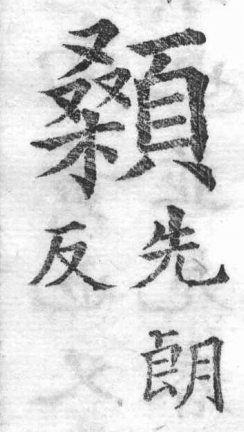 顙
先朗
反